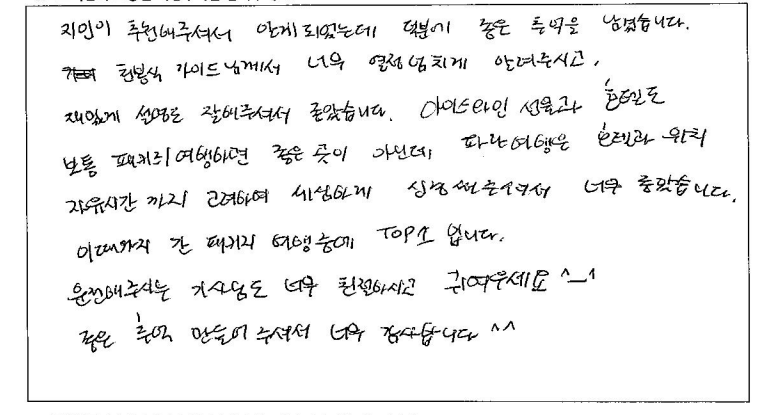 지인이 추천해주셔서 알게되었는데 덕분에 좋은 추억을 남겼습니다.
현봉식 가이드님께서 너무 열정넘치게 알려주시고,
재밌게 설명도 잘해주셔서 좋았습니다. 아이스와인 선물과 호텔도
보통 패키지여행하면 좋은 곳이 아닌데 파란여행은 호텔과 위치
자유시간 까지 고려하여 세심하게 신경써주셔서 너무 좋았습니다.
이때까지 간 패키지 여행중에 TOP1 입니다.
운전해주시는 기사님도 너무 친절하시고 귀여우세요 ^_^
좋은 추억 만들어 주셔서 너무 감사합니다 ^^